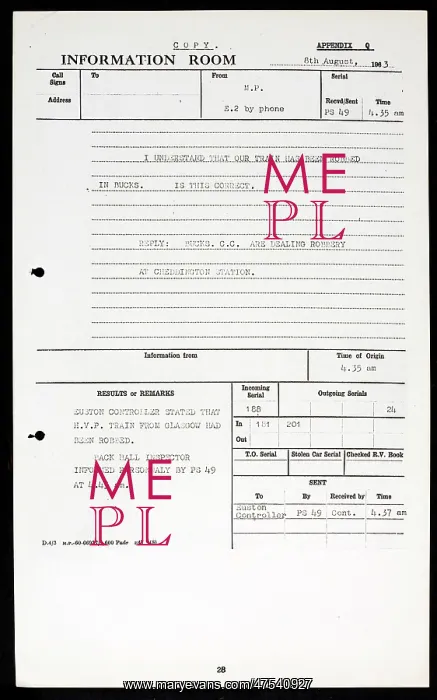 COPY.
APPENDIX Q
INFORMATION ROOM
8th August, 1963
Call Signs
To
From
Serial
M.P.
Address
Recvd/Sent
Time
E.2 by phone
PS 49
4.35 am
I UNDERSTAND THAT OUR TRAIN HAS BEEN ROBBED
IN BUCKS. IS THIS CORRECT.
ME
PL
REPLY: BUCKS. C.C. ARE DEALING ROBBERY
AT CHEDDINGTON STATION.
Information from
Time of Origin
4.35 am
RESULTS or REMARKS
Incoming Serial
Outgoing Serials
188
24
EUSTON CONTROLLER STATED THAT
H.V.P. TRAIN FROM GLASGOW HAD
BEEN ROBBED.
In
201
Out
BACK HALL INSPECTOR
INFORMED PERSONALY BY PS 49
AT am.
T.O. Serial
Stolen Car Serial
Checked R.V. Book
ME
PL
SENT
To
By
Received by
Time
Euston
Controller
PS 49
Cont.
4.37 am
D.4/3
28
www.maryevans.com/47540927